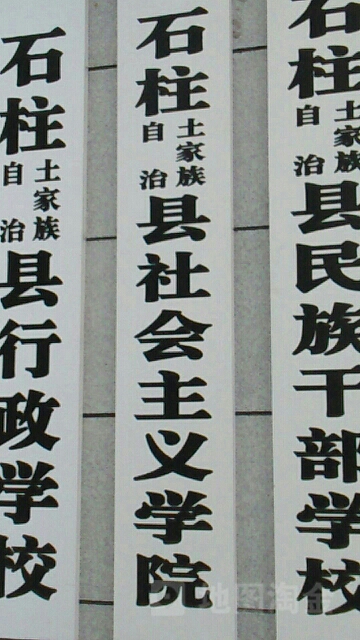 石柱土家族自治县行政学校
石柱土家族自治县社会主义学院
石柱土家族自治县民族干部学校
地图淘金